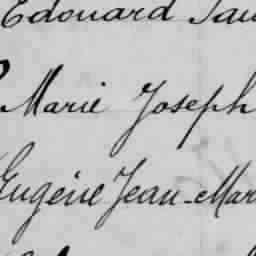 Edouard
Marie Joseph
Eugène Jean-Mar